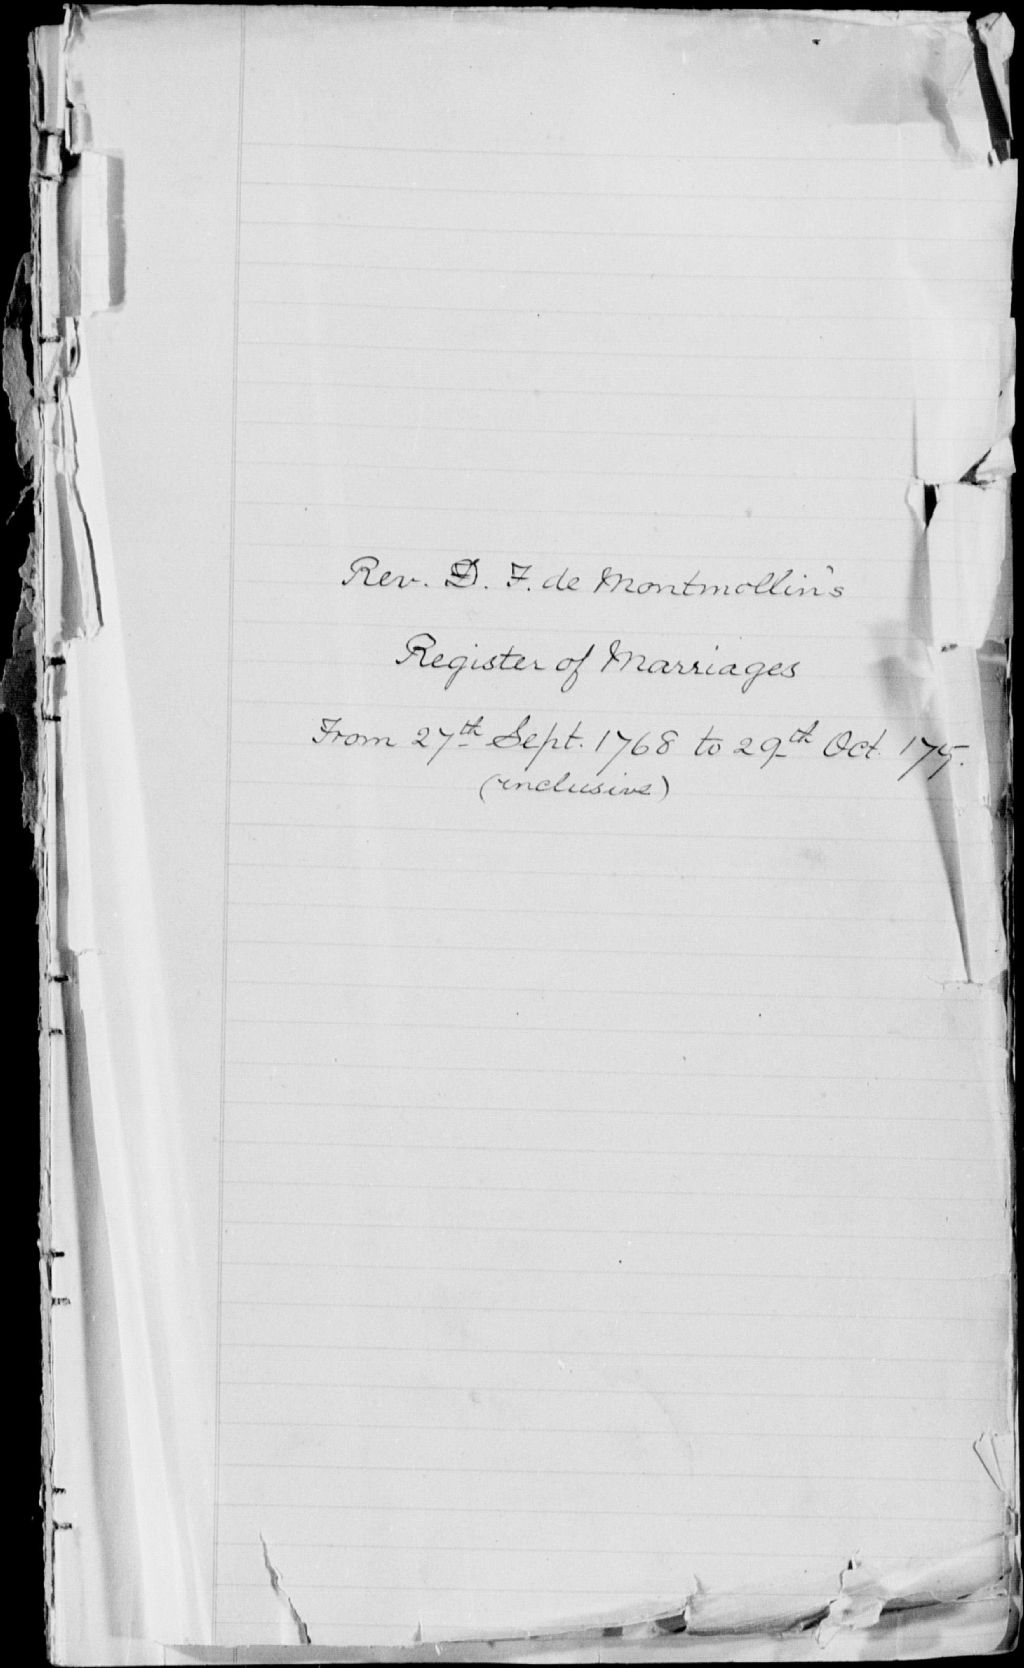 Rev. D. F. de Montmollin's
Register of Marriages
From 27th Sept. 1768 to 29th Oct.
(inclusive)